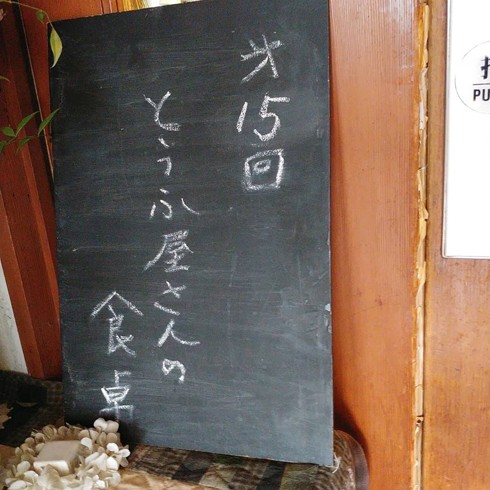 㐧15回
とうふ屋さんの
食卓
PU